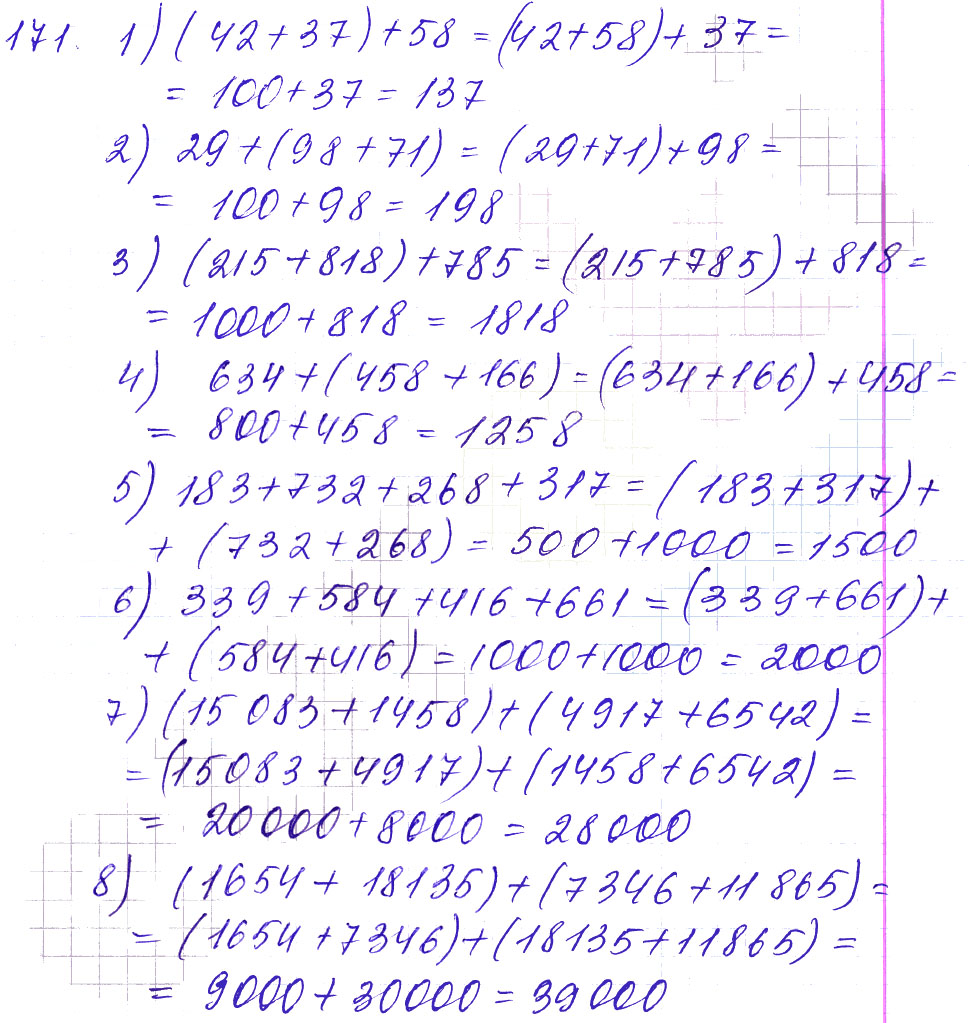 171. 1) (42+37)+58=(42+58)+37=
= 100+37=137
2) 29+(98+71)=(29+71)+98=
= 100+98=198
3) (215+818)+785=(215+785)+818=
= 1000+818=1818
4) 634+(458+166)=(634+166)+458=
= 800+458=1258
5) 183+732+268+317=(183+317)+
+(732+268)=500+1000=1500
6) 339+584+416+661=(339+661)+
+(584+416)=1000+1000=2000
7) (15 083+1458)+(4917+6542)=
=(15083+4917)+(1458+6542)=
= 20000+8000=28000
8) (1654+18135)+(7346+11 865)=
=(1654+7346)+(18135+11865)=
= 9000+30000=39000